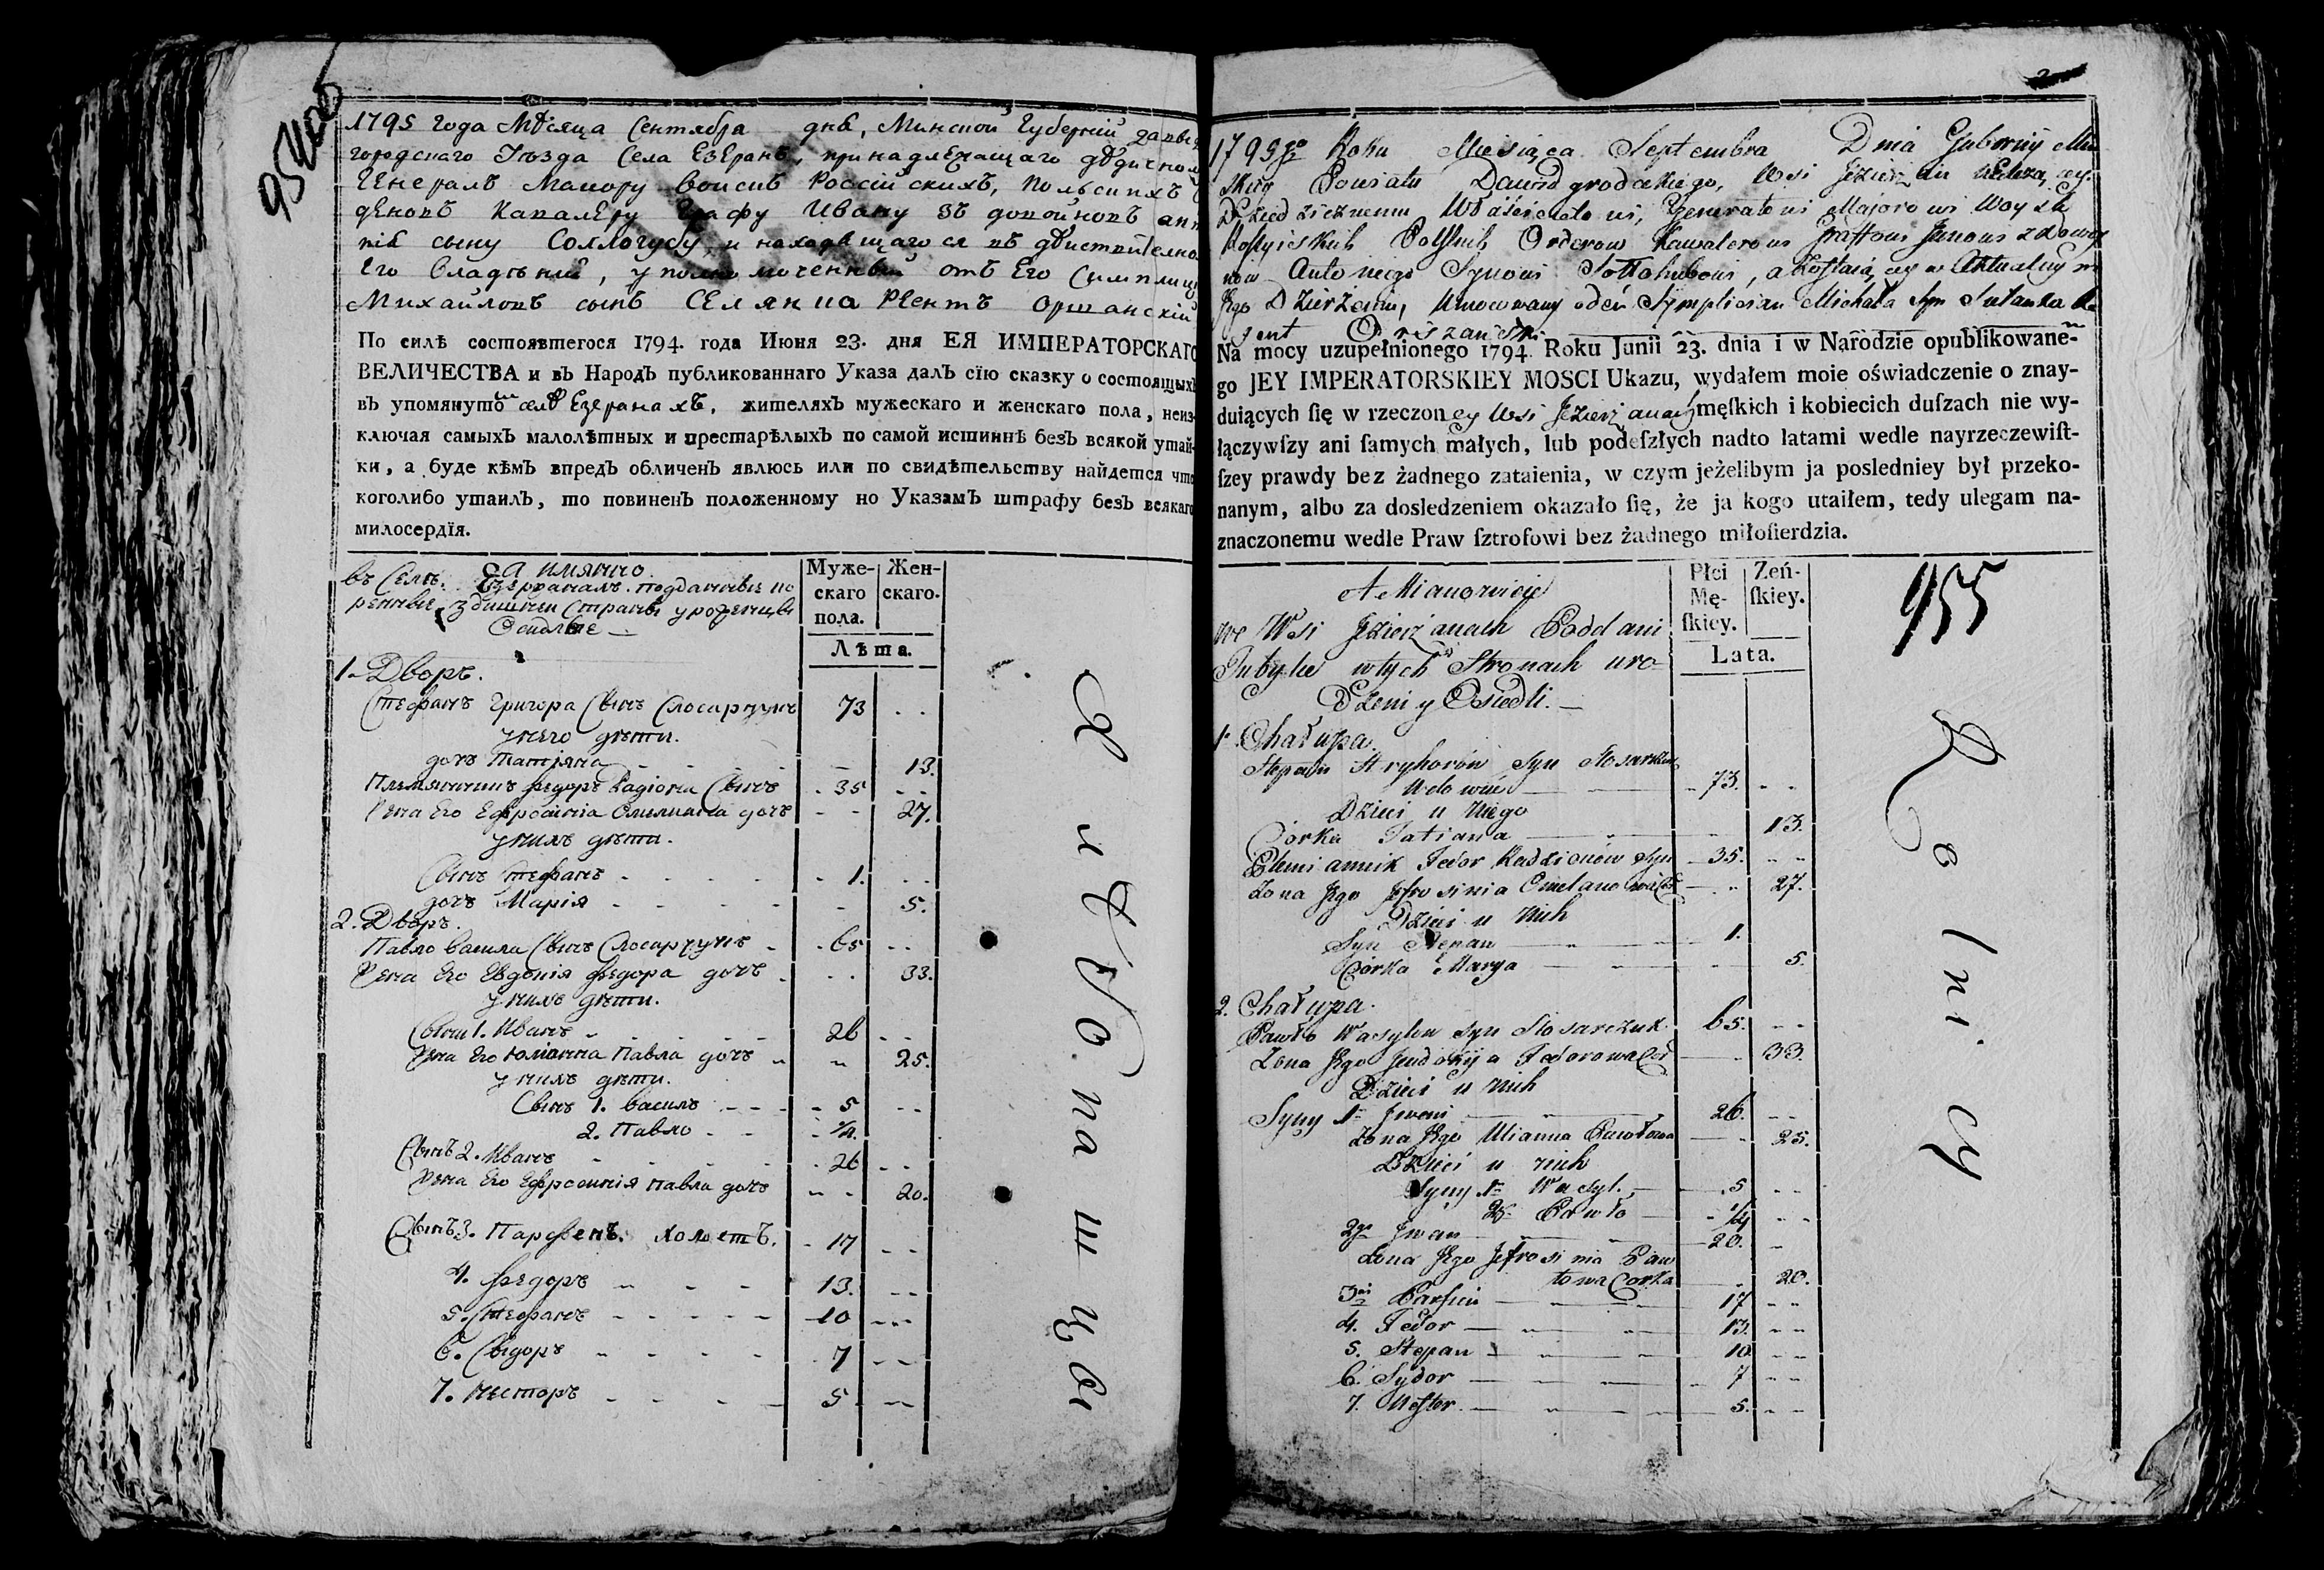 1795 года Мѣсяца Сентября дня, Минской Губерніи
городскаго Уѣзда Села Езеранъ, принадлежащаго дѣдичном
Генералъ Маиору воискъ Россійскихъ, Польскихъ
деновъ Кавалеру Графу Ивану зъ
сыну Соллогубу, и находящагося въ дѣиствително
Его владѣніи, уполномоченный отъ Его
Михайловъ сынъ Селянка Реентъ Оршанскій
По силѣ состоявшегося 1794. года Июня 23. дня ЕЯ ИМПЕРАТОРСКАГО
ВЕЛИЧЕСТВА и въ Народъ публикованнаго Указа далъ сїю сказку о состоящыхъ
въ упомянутомъ селѣ Езеранахъ, жителяхъ мужескаго и женскаго пола, неиз-
ключая самыхъ малолѣтныхъ и престарѣлыхъ по самой истиннѣ безъ всякой утай-
ки, а буде кѣмъ впредъ обличенъ явлюсь или по свидѣтельству найдется что
коголибо утаилъ, то повиненъ положенному по Указамъ штрафу безъ всякаго
милосердїя.
А имянно
въ Селѣ Езеранахъ подданные ко
ренные здѣшнеи Страны уроженцы
Оседлые
Муже-
скаго
пола.
Жен-
скаго.
Лѣта.
1. Дворъ.
Стефанъ Григора Сынъ Слосарчукъ 73
у него дѣти.
дочъ Татіяна 13.
Племянникъ Федоръ Радіона Сынъ 35
Жена Его Ефросинія Омиляна дочъ 27.
у нихъ дѣти.
Сынъ Стефанъ 1.
дочъ Марія 5.
2. Дворъ.
Павло Васила Сынъ Слосарчукъ 65
Жена Его Евдокія Федора дочъ 33.
у нихъ дѣти.
Сыны 1. Иванъ 26
Жена Его Юліянна Павла дочъ 25.
у нихъ дѣти.
Сынъ 1. Василъ 5
2. Павло 1/4.
Сынъ 2. Иванъ 26
Жена Его Ефросинія Павла дочъ 20.
Сынъ 3. Парфенъ. холостъ. 17
4. Федоръ 13.
5. Стефанъ 10
6. Сыдоръ 7
7. Несторъ 5
1795go Roku Miesiąca Septembra Dnia Gubernij Miń
skiey Powiatu Dawidgrodzkiego, Wsi Jezierzan
Dziedzicznemu Właścicielowi, Generałowi Majorowi Woysk
Rossyiskich Polskich Orderow Kawalerowi Graffowi Janowi
Antoniego Synowi Sołłohubowi, a zostaiącey w Aktualnym
Jego Dzierżeniu, Umocowany odeń Symplician Michała Syn Sielanka Re
jent Orszański
Na mocy uzupełnionego 1794. Roku Junii 23. dnia i w Narodzie opublikowane-
go JEY IMPERATORSKIEY MOSCI Ukazu, wydałem moie oświadczenie o znay-
duiących ſię w rzeczoney Wsi Jezierzanach męſkich i kobiecich duſzach nie wy-
łączywſzy ani ſamych małych, lub podeſzłych nadto latami wedle nayrzeczewiſt-
ſzey prawdy bez żadnego zataienia, w czym jeżelibym ja posledniey był przeko-
nanym, albo za dosledzeniem okazało ſię, że ja kogo utaiłem, tedy ulegam na-
znaczonemu wedle Praw ſztrofowi bez żadnego miłoſierdzia.
A Mianowicie
we Wsi Jezierzanach Poddani
Tutysze w tych Stronach uro-
Dzeni y Osiedli.
Płci
Mę-
ſkiey.
Zeń-
ſkiey.
Lata.
955
1. Chałupa.
Stepan Hryhorów Syn Slosarczuk
Wdowiec 73.
Dzieci u niego
Corka Tatiana 13.
Plemiannik Fedor Radzionów Syn 35.
Zona Jego Jefrosinia Omelanowa Cor 27.
Dzieci u nich
Syn Stepan 1.
Corka Marya 5.
2. Chałupa.
Pawło Wasylew Syn Slosarczuk 65.
Zona Jego Jewdokija Fedorowa Cor 33.
Dzieci u nich
Syny 1. Jwan 26.
Zona Jego Ulianna Pawłowa 25.
Dzieci u nich
Syny 1. Wasyl. 5
2. Pawło 1/4
2gi Jwan 20.
Zona Jego Jefrosinia Paw
łowa Corka 20.
3ci Parfien 17
4. Fedor 13.
5. Stepan 10
6. Sydor 7
7. Nestor 5.
Rolnicy